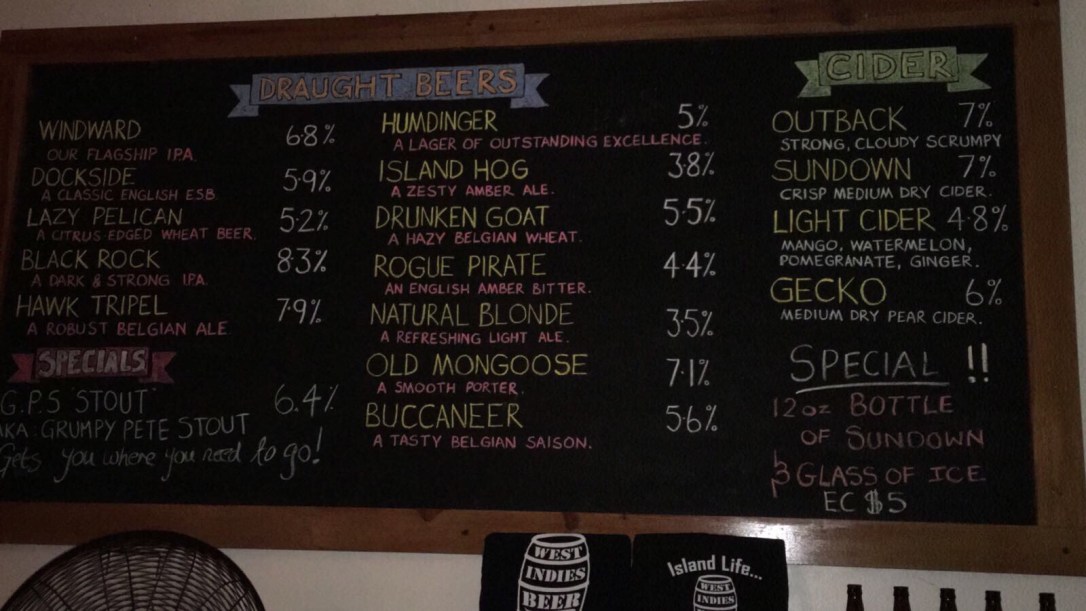 DRAUGHT BEERS
WINDWARD 6.8%
OUR FLAGSHIP IPA.
DOCKSIDE 5.9%
A CLASSIC ENGLISH ESB
LAZY PELICAN 5.2%
A CITRUS-EDGED WHEAT BEER.
BLACK ROCK 8.3%
A DARK & STRONG IPA.
HAWK TRIPEL 7.9%
A ROBUST BELGIAN ALE.
SPECIALS
G.P.S STOUT 6.4%
AKA: GRUMPY PETE STOUT
Gets you where you need to go!
HUMDINGER 5%
A LAGER OF OUTSTANDING EXCELLENCE.
ISLAND HOG 3.8%
A ZESTY AMBER ALE.
DRUNKEN GOAT 5.5%
A HAZY BELGIAN WHEAT.
ROGUE PIRATE 4.4%
AN ENGLISH AMBER BITTER.
NATURAL BLONDE 3.5%
A REFRESHING LIGHT ALE.
OLD MONGOOSE 7.1%
A SMOOTH PORTER.
BUCCANEER 5.6%
A TASTY BELGIAN SAISON.
CIDER
OUTBACK 7%
STRONG, CLOUDY SCRUMPY
SUNDOWN 7%
CRISP MEDIUM DRY CIDER.
LIGHT CIDER 4.8%
MANGO, WATERMELON,
POMEGRANATE, GINGER.
GECKO 6%
MEDIUM DRY PEAR CIDER.
SPECIAL !!
12oz BOTTLE
OF SUNDOWN
GLASS OF ICE
EC $5
WEST
INDIES
BEER
Island Life...
WEST
INDIES